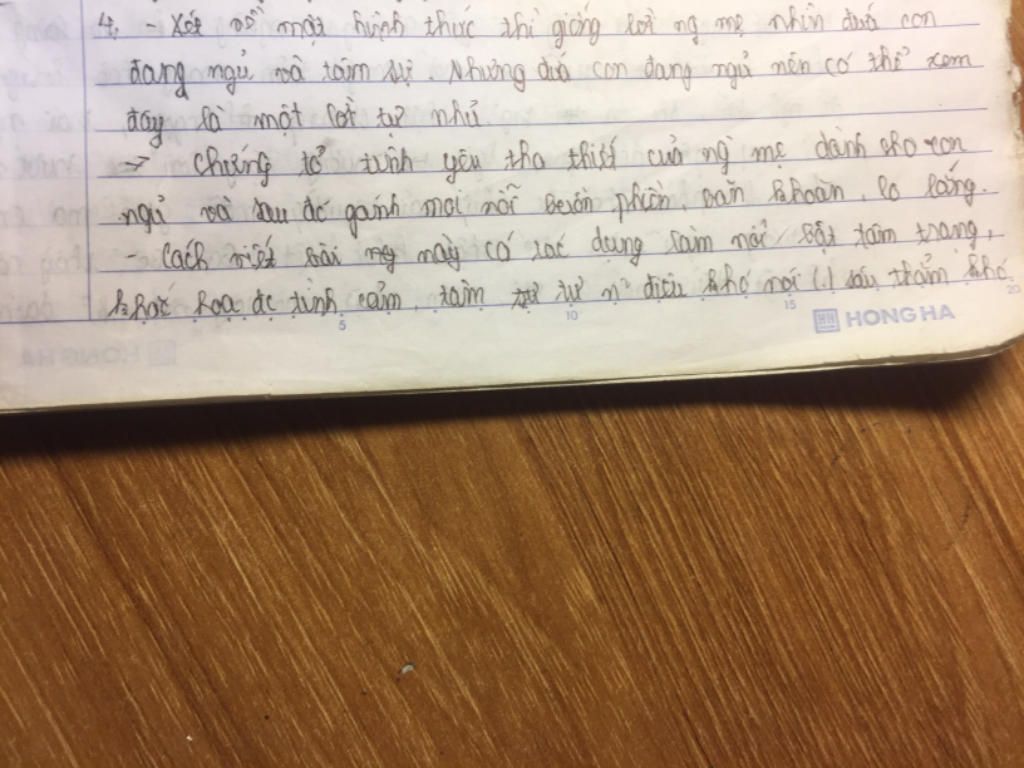 4. - Xét về mặt hình thức thì giống lời ng mẹ nhìn đứa con
đang ngủ mà tâm sự. Nhưng đứa con đang ngủ nên có thể xem
đây là một lời tự nhủ
=> Chứng tỏ tình yêu tha thiết của ng mẹ dành cho con
ngủ và sau đó gánh mọi nỗi buồn phiền, băn khoăn, lo lắng.
- Cách viết bài này có tác dụng làm nổi bật tâm trạng,
khắc hoạ đc tình cảm, tâm tư n~ điều khó nói ( sâu thẳm khó
5 10 15 20
HONG HA